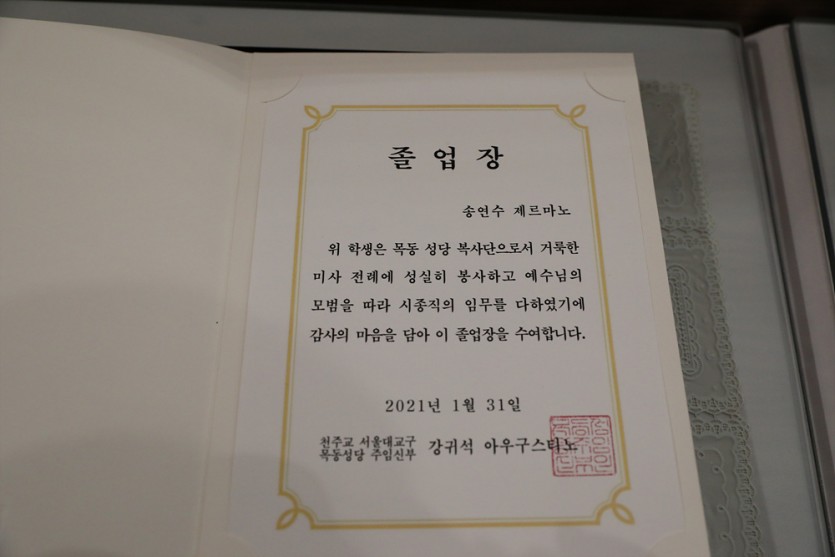 졸업장
송연수 제르마노
위 학생은 목동 성당 복사단으로서 거룩한
미사 전례에 성실히 봉사하고 예수님의
모범을 따라 시종직의 임무를 다하였기에
감사의 마음을 담아 이 졸업장을 수여합니다.
2021년 1월 31일
천주교 서울대교구
목동성당 주임신부
강귀석 아우구스티노